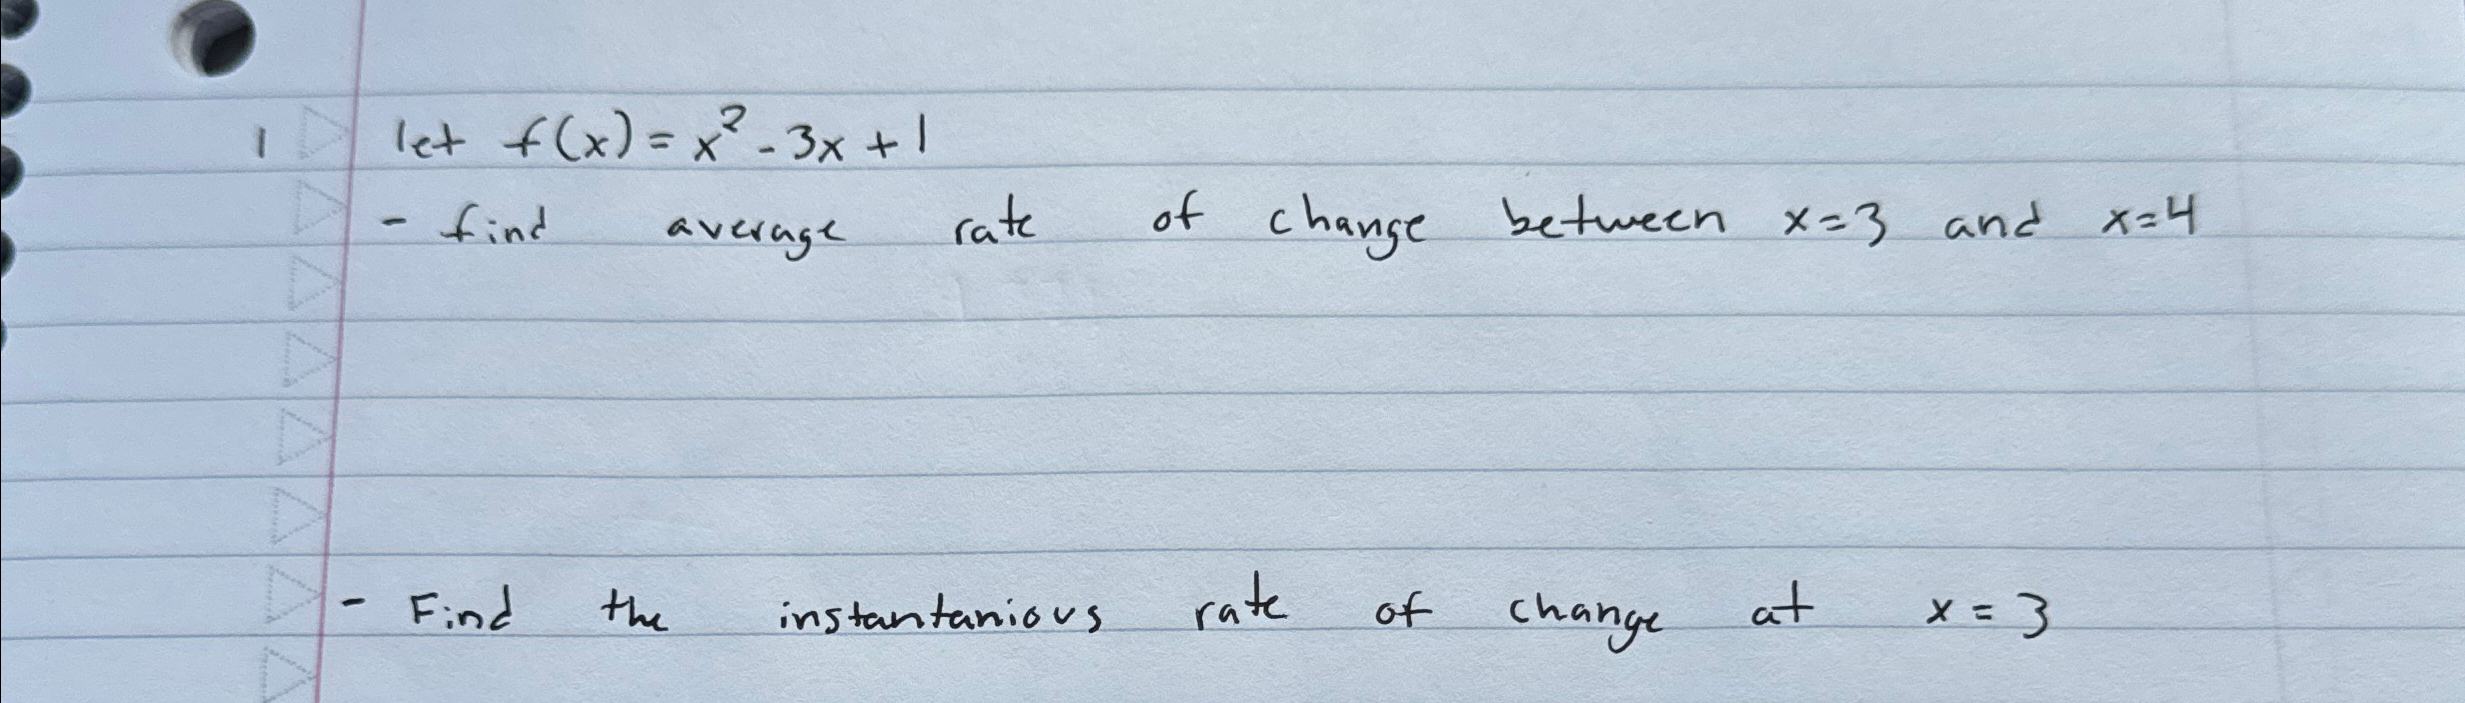 1 let f(x) = x² - 3x + 1
- find average rate of change between x=3 and x=4
- Find the instantanious rate of change at x = 3